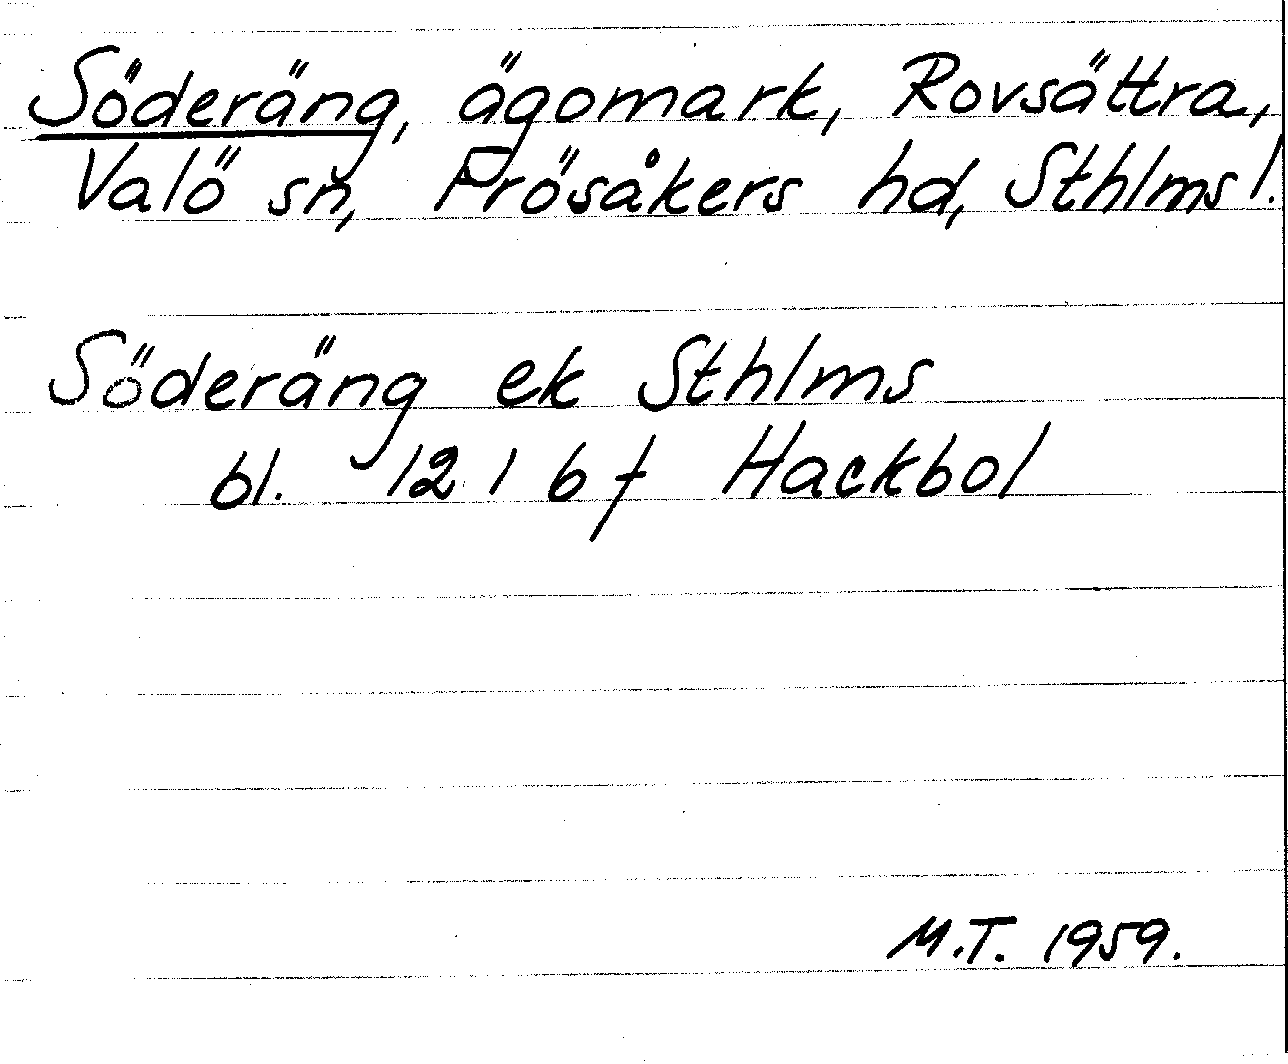 Söderäng, ägomark, Rovsättra,
Valö sn, Frösåkers hd, Sthlms l.
Söderäng ek Sthlms
bl. 12 1 b f Hackbol
M.T. 1959.